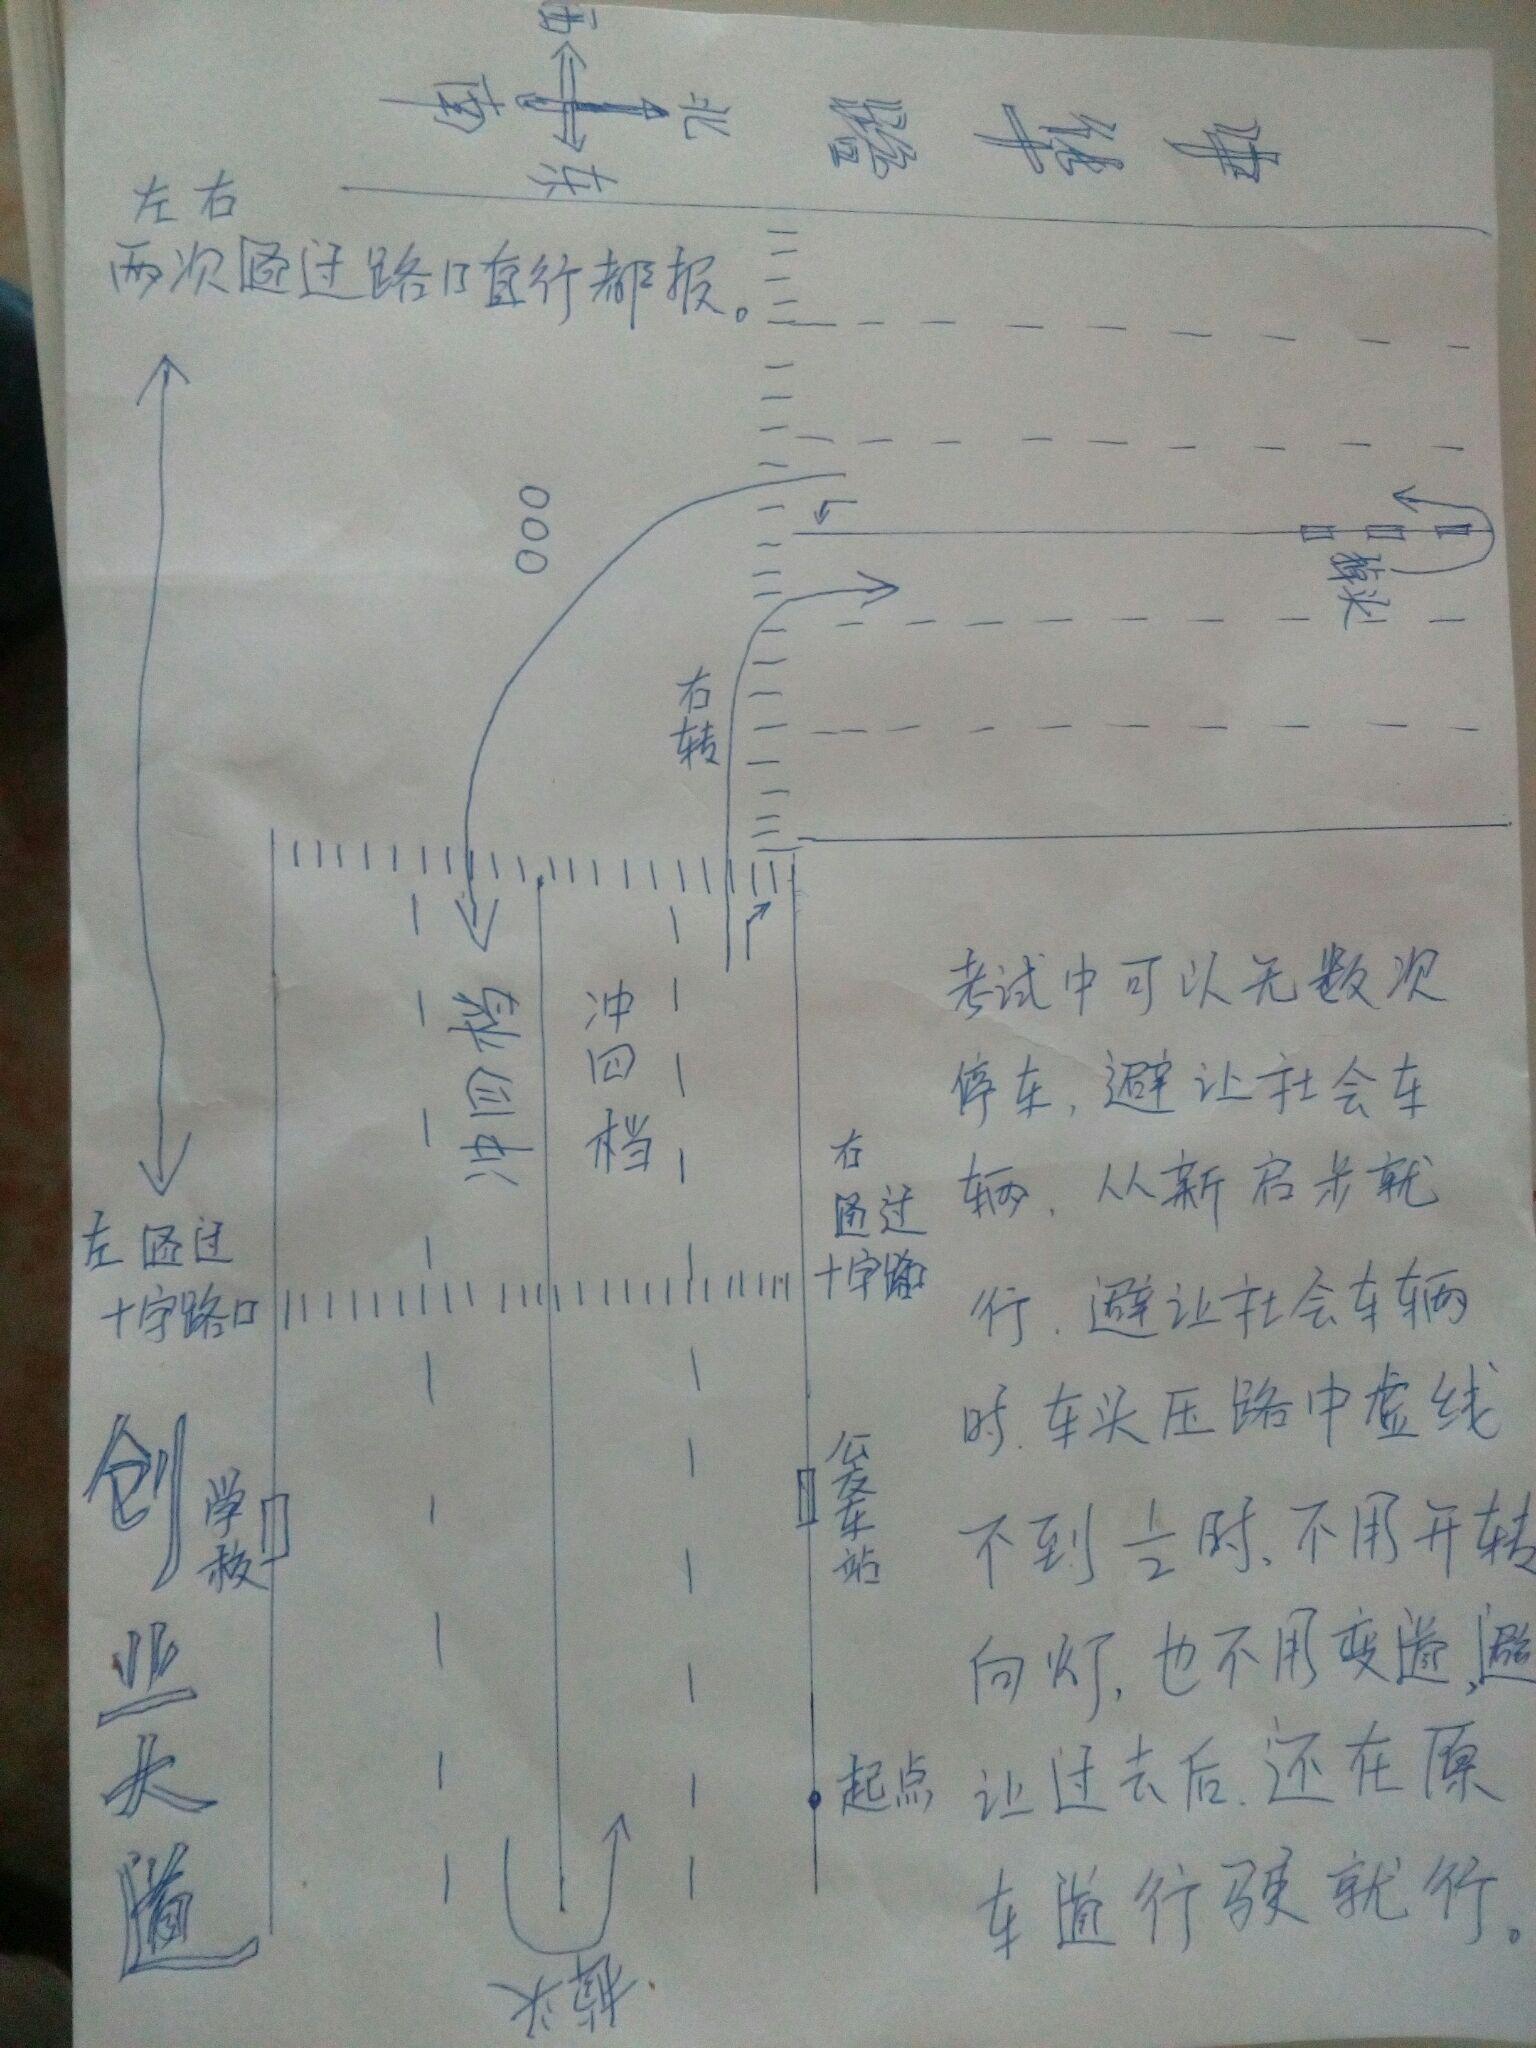 西
南
北
东
路
左右
两次通过路口直行都报。
右转
掉头
冲四档
冲四档
考试中可以无数次
停车，避让社会车
辆、从新启步就
行、避让社会车辆
时、车头压路中虚线
不到½时、不用开转
向灯，也不用变道，避
让过去后、还在原
车道行驶就行。
左通过
十字路口
右
通过
十字路口
创业大道
学校
公交车站
起点
掉头